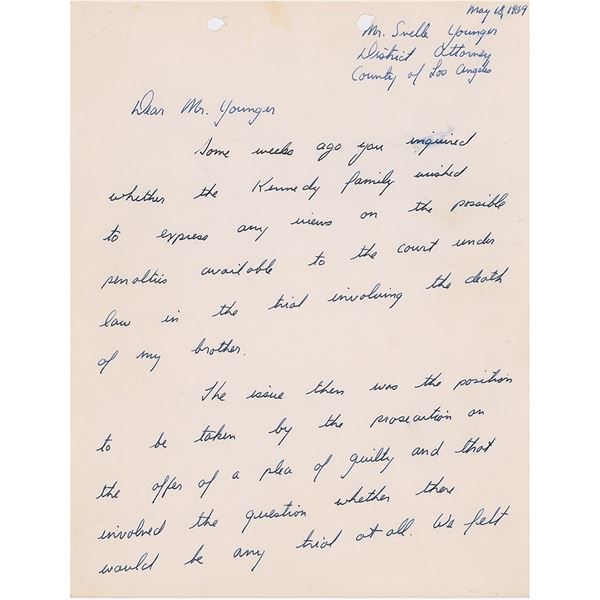 May 18, 1969
Mr. Evelle Younger
District Attorney
County of Los Angeles
Dear Mr. Younger
Some weeks ago you inquired
whether the Kennedy family wished
to express any views on the possible
penalties available to the court under
law in the trial involving the death
of my brother.
The issue then was the position
to be taken by the prosecution on
the offer of a plea of guilty and that
involved the question whether there
would be any trial at all. We felt